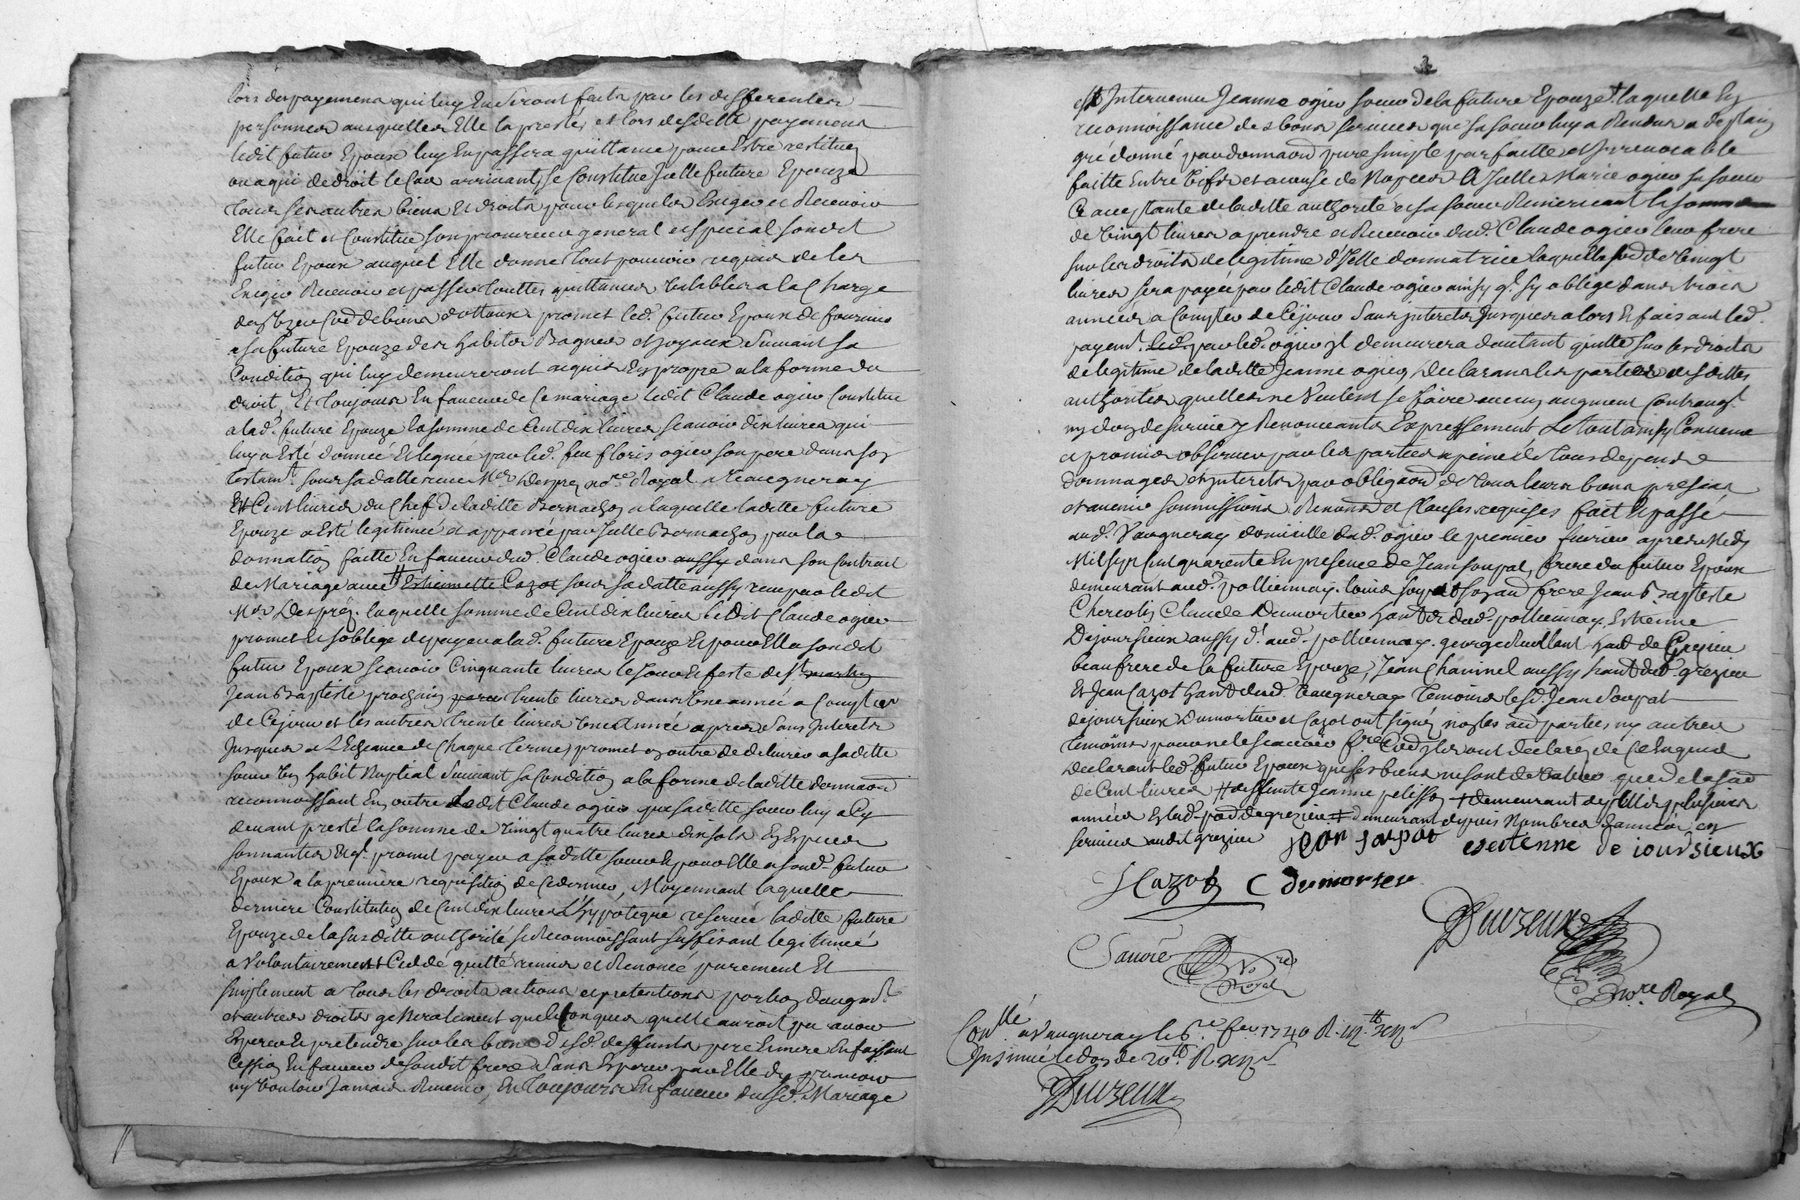 lors des payemens qui luy En seront faits par les differentes
personnes ausquelles Elle la prestés, et lors desdits payemens
ledit futur Epoux luy En passera quittance pour Estre restitué
ou a qui de droit le Cas arrivant, se Constitue Jcelle future Epouze
tous ses autres biens Et droits pour lesquels Exiger et Recevoir
Elle fait et Constitue son procureur general et special sondit
futur Epoux auquel Elle donne tout pouvoir requis de les
Exiger Recevoir et passer touttes quittances Valables a la Charge
promet led. futur Epoux de fournir
a sa future Epouze des habits Bagues et Joyaux suivant sa
Condition qui luy demeureront aquis En propre a la forme du
droit, Et toujours En faveur de Ce mariage ledit Claude ogier Constitue
a lad. future Epouze la somme de Cent dix livres scavoir dix livres qui
luy a Esté donnée Et leguée par led. feu floris ogier son pere dans son
testamt. sous sa datte receu Me. Desprez nore. Royal a Vaugneray
Et Cent livres du Chef de laditte Bernachon a laquelle laditte future
Epouze a Esté legitimée et appanée par Jcelle Bernachon par la
donnation faitte En faveur dud. Claude ogier aussy dans son Contrait
de Mariage avec # Estiennette Cazot sous sa datte aussy receu par ledit
Me. Desprez. laquelle somme de Cent dix livres ledit Claude ogier
promet Et s'oblige de payer a lad. future Epouze Et pour Elle a son dit
futur Epoux scavoir Cinquante livres le jour Et feste de St. martin
Jean Baptiste prochain trente livres dans Une année a Compter
de Ce jour et les autres trente livres Une année apres sans Interets
Jusques a L'Echeance de Chaque terme, promet En outre de delivrer a saditte
soeur Un habit Nuptial suivant sa Condition a la forme de laditte donnaon
reconnoissant En outre ledit Claude ogier que saditte soeur luy a Cy
devant presté la somme de Vingt quatre livres dix sols En Especes
sonnantes Et ql. promet payer a saditte soeur Et pour Elle a sond. futur
Epoux a la premiere requisition de Ce dernier, Moyennant laquelle
derniere Constitution de Cent dix livres L'hypoteque reservée laditte future
Epouze de la susditte authorité se Reconnoissant suffisant legitimée
a Volontairement Ceddé quitté remis et Renoncé purement Et
simplement a tous les droits actions et pretentions portion d'augmt.
et autres droits generalement quelconques quelle auroit pu avoir
Esperer Et pretendre sur les biens desd. deffunts pere Et mere En faisant
Cession En faveur de son dit frere sans Esperer par Elle d'y pouvoir
ny Vouloir Jamais Revenir, En toujours En faveur dud. Mariage
est Intervenue Jeanne ogier soeur de la future Epouze + laquelle En
reconnoissance des bons services que sa soeur luy a Rendus a de plain
gré donné par donnaon pure simple parfaitte et Irrevocable
faitte Entre Vifs et a cause de Nopces A Jcelle Marie ogier sa soeur
Ce acceptante de laditte authorité et sa soeur Remerciant la somme
de Vingt livres a prendre et Recevoir dud. Claude ogier leur frere
sur les droits de legitime d'Jcelle donnatrice laquelle sod de Vingt
livres sera payée par ledit Claude ogier ainsy ql. s'y oblige dans trois
années a Compter de Ce jour sans interets Jusques alors Et faisant led.
payemt. par led. ogier Jl demeurera d'autant quitte sur les droits
de legitime de laditte Jeanne ogier, Declarans les parties desdittes
authorités quelles ne Veulent se faire aucun augment Contraugt.
ny don de survie y Renonceants Expressement Le tout ainsy Convenu
et promis observer par les parties a peine de tous depends
dommages et interets par obligaon de tous leurs biens presens
et avenir soumissions Renonon. et Clauses requises fait Et passé
aud. Vaugneray domicille dud. ogier le premier fevrier apres Midy
Mil sept Cent quarente En presence de Jean soupat, frere du futur Epoux
demeurant aud. pollionnay. louis soupat frere Jean Baptiste
Claude Dumortier hants. dud. pollionnay. Estienne
Dejoursieux aussy dt. aud. pollionnay. george hant. de Grezieu
beaufrere de la future Epouze, Jean Chavinel aussy hant. dud. grezieu
Et Jean Cazot hant. dud. Vaugneray temoins lesd. Jean Soupat
dejoursieux Dumortier et Cazot ont signés non les aud. parties, ny autres
temoins pour ne le scavoir faire Comme Jls ont declaré de Ce Enquis
Declarant led. futur Epoux que ses biens ne sont de Valeur que de la sod
de Cent livres # deffunte Jeanne pelisson + demeurant depuis plusieurs
années Et lad. pard. de grezieu # demeurant depuis Nombres d'années En
service audit grezieu Jean soupat eestienne de ioursieux
J Cazot C dumortier
Duvreux
Sauvé
Royal
nore. Royal
Conllé a Vaugneray le 6e. fev. 1740 R.
Insinué le don de 20tt R
Duvreux